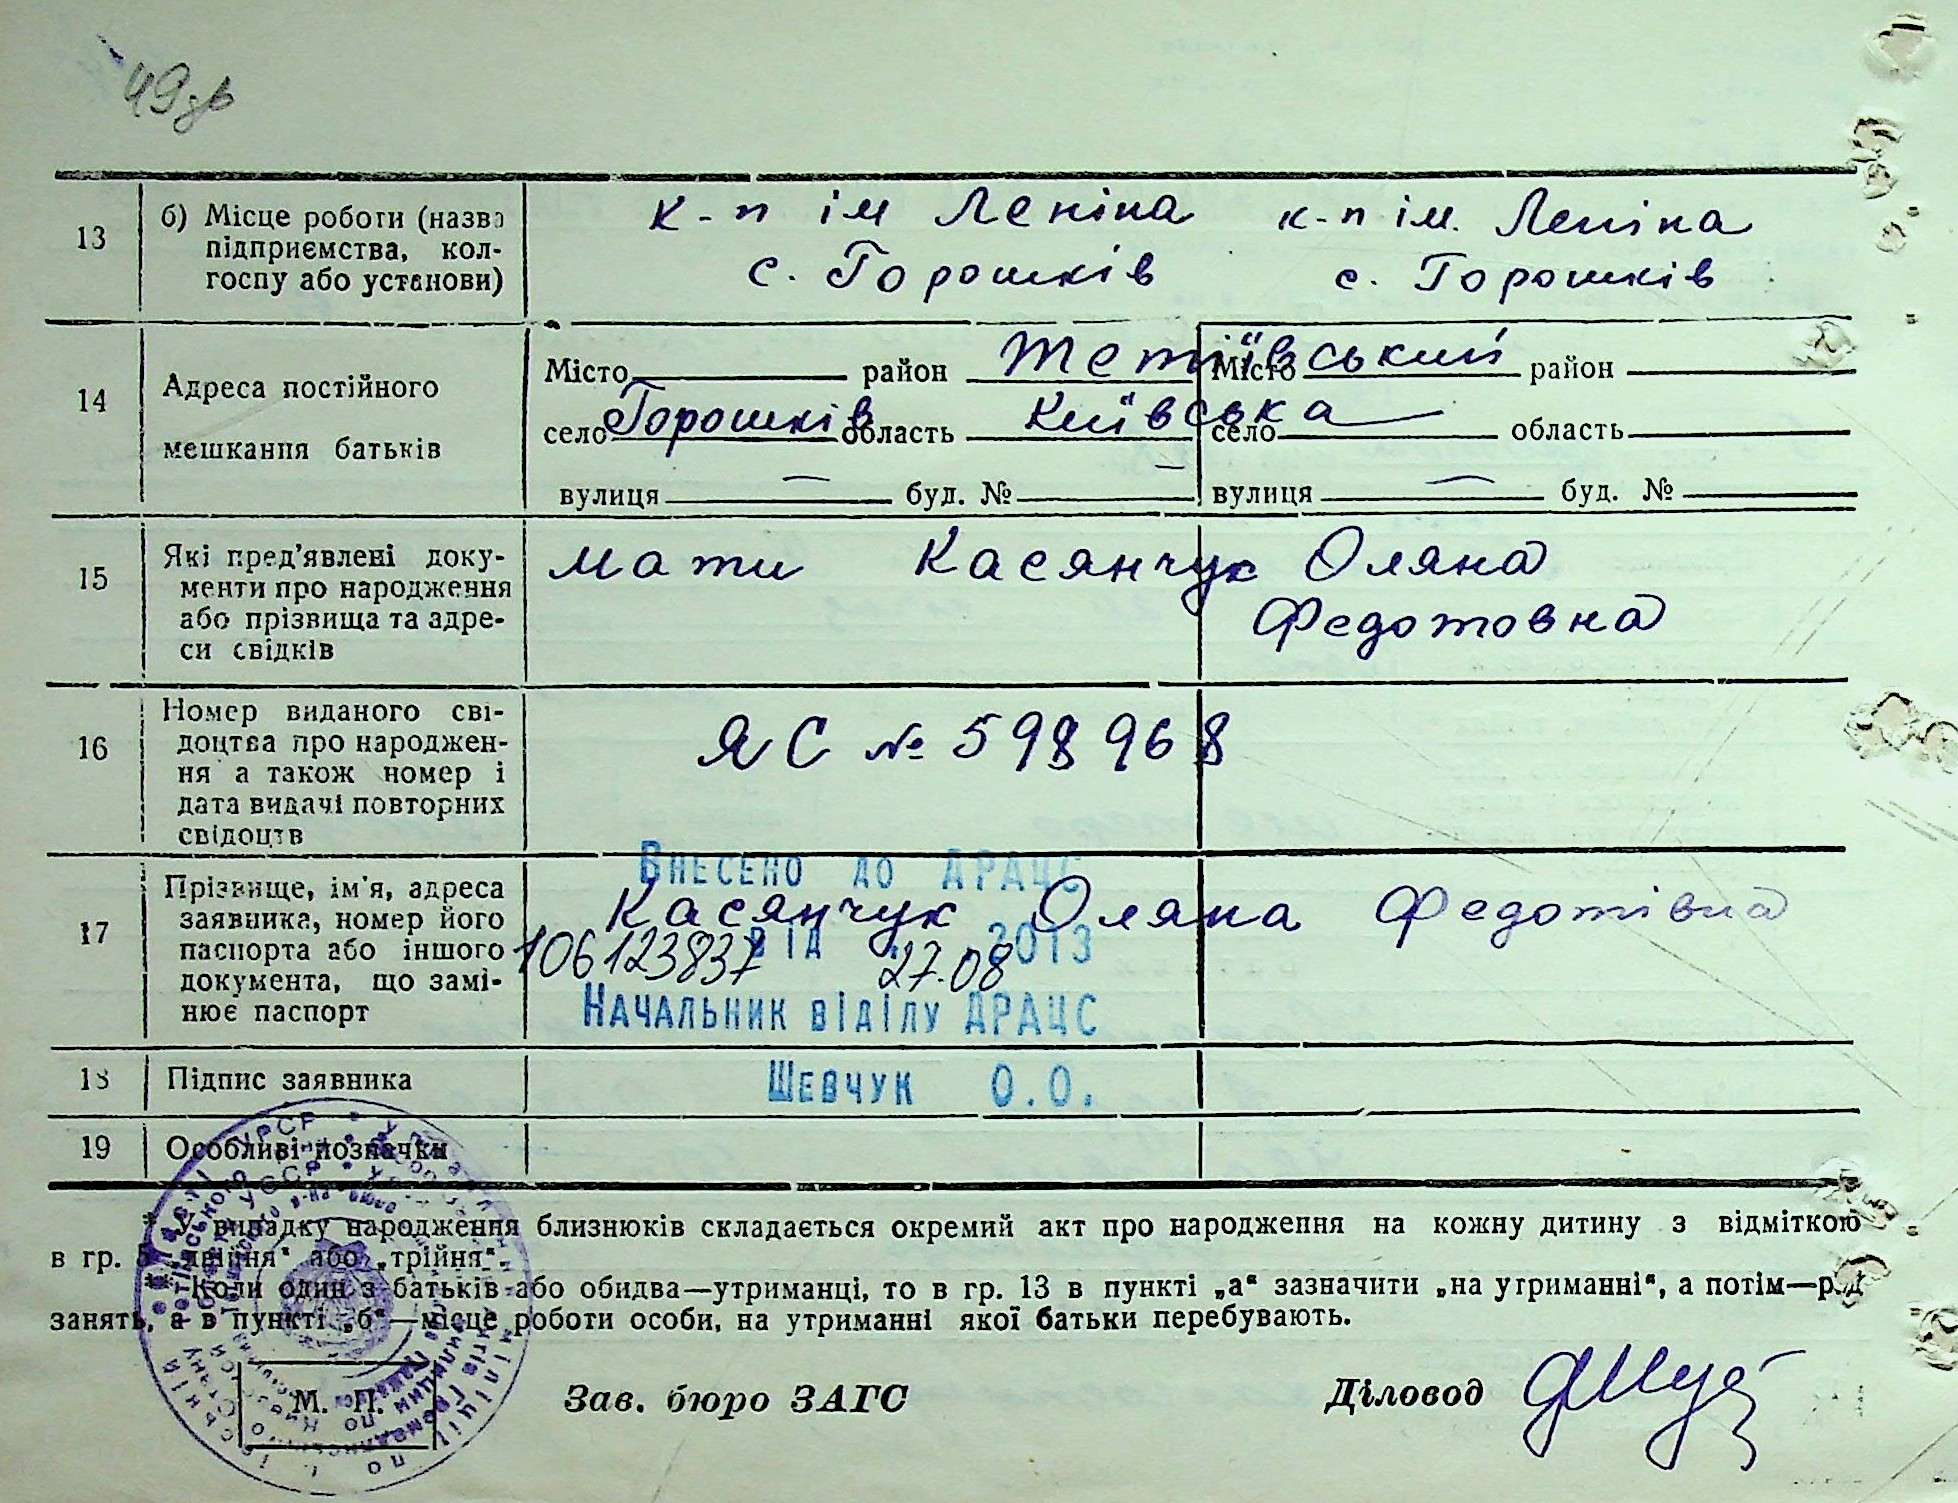 49зв
13 б) Місце роботи (назва підприємства, колгоспу або установи)
к-п ім Леніна к-п ім. Леніна
с. Горошків с. Горошків
14 Адреса постійного мешкання батьків
Місто район Тетіївський Місто район
село Горошків область Київська село область
вулиця — буд. № — вулиця — буд. №
15 Які пред'явлені доку-
менти про народження
або прізвища та адре-
си свідків
мати Касянчук Оляна
Федотовна
16 Номер виданого сві-
доцтва про народжен-
ня а також номер і
дата видачі повторних
свідоцтв
ЯС № 598968
17 Прізвище, ім'я, адреса
заявника, номер його
паспорта або іншого
документа, що замі-
нює паспорт
Внесено до ДРАЦС
Касянчук Оляна Федотівна
106123837 від 27.08 2013
Начальник відділу ДРАЦС
18 Підпис заявника
Шевчук О.О.
19 Особливі позначки
* У випадку народження близнюків складається окремий акт про народження на кожну дитину з відміткою
в гр. 5 „двійня“ або „трійня“.
Коли один з батьків або обидва—утриманці, то в гр. 13 в пункті „а“ зазначити „на утриманні“, а потім—рід
занять, а в пункті „б“—місце роботи особи, на утриманні якої батьки перебувають.
М. П. Зав. бюро ЗАГС Діловод